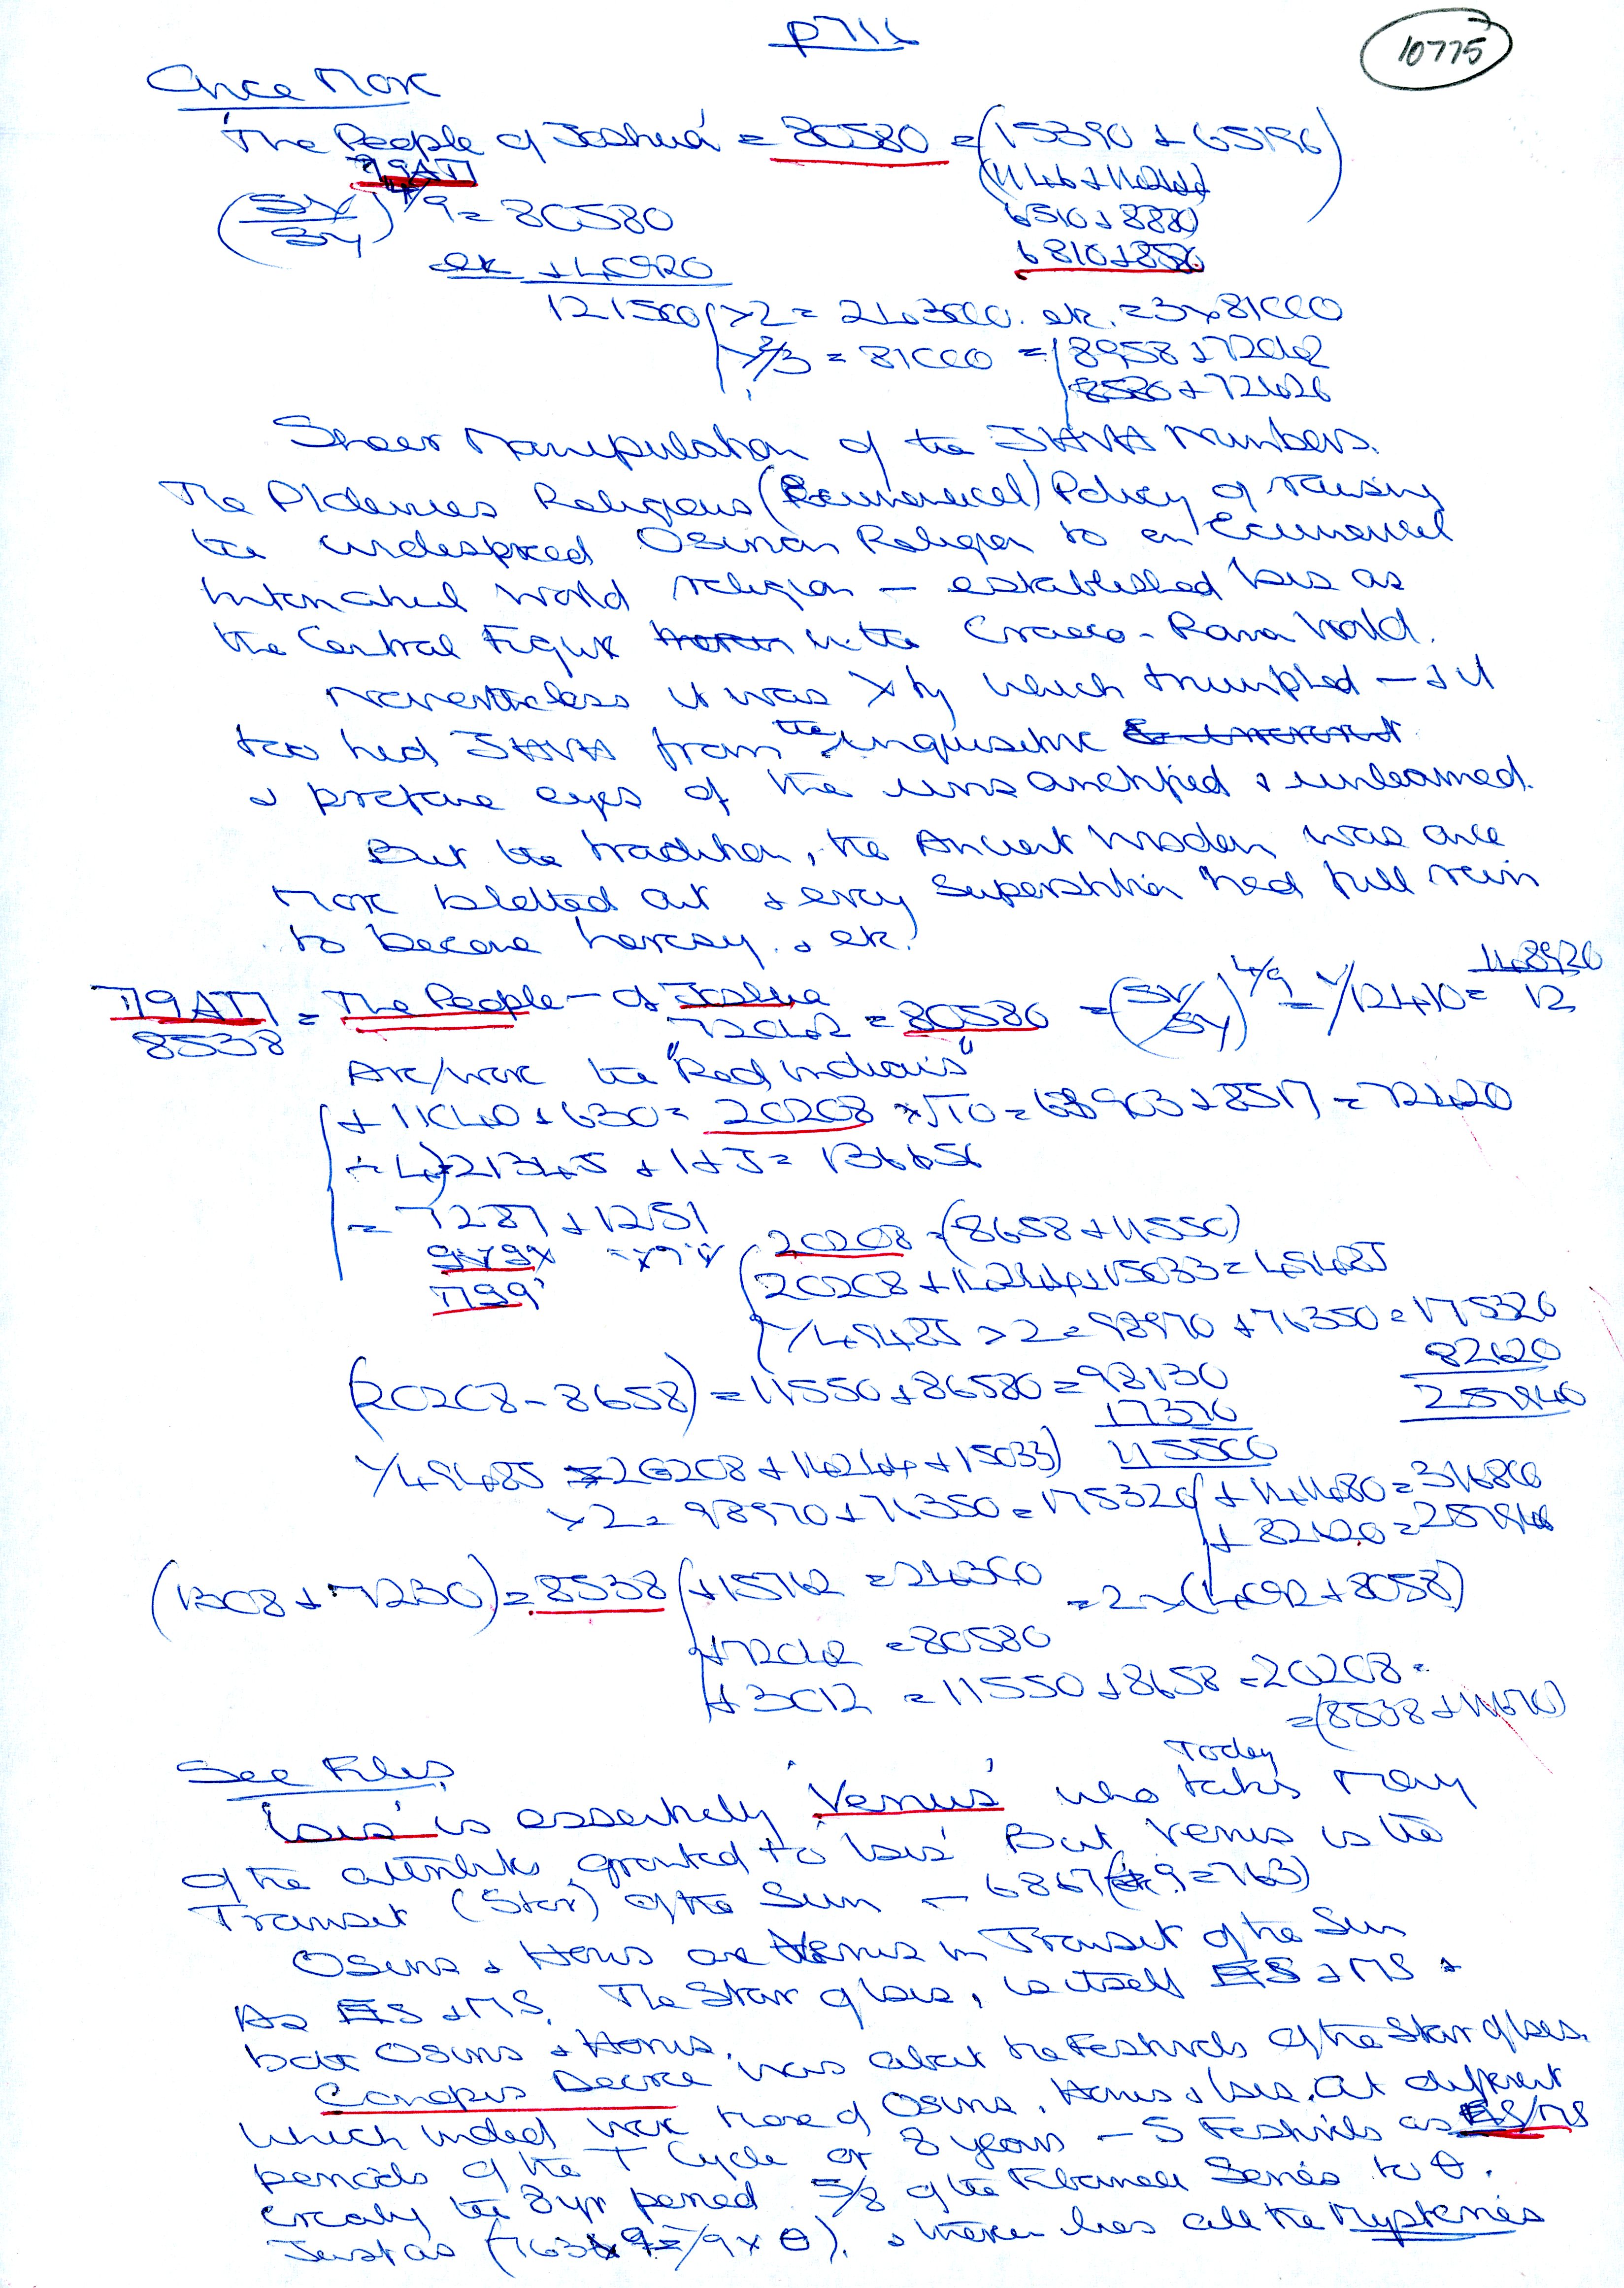 p711
10775
Once More
'The People of Joshua' = 80580 = (15390 + 65196)
6510 + 8880
6810 + 8580
= 80580
etc + 40920
121500 × 2 = 243000. etc. = 3 × 81000
× 2/3 = 81000 = 8958 + 72042
8580 + 72420
Sheer Manipulation of the JAVA Numbers.
The Ptolemies Religious (Ecumenical) Policy of raising
the widespread Osirian Religion to an Ecumenical
International World religion – established Isis as
the Central Figure in the Graeco-Roman World.
Nevertheless it was Xty which triumphed – & it
too hid JAVA from the inquisitive
& profane eyes of the unsanctified & unlearned.
But the tradition, the Ancient Wisdom was once
more blotted out & every Superstition had full rein
to become heresy. & etc.
8538 = The People – of Joshua 72042 = 80580 =
Are/were the "Red Indians"
+ 11040 + 630 = 20208 × √10 = 63903 + 8517 = 72420
= 7287 + 1251
20208 = (8658 + 11550)
20208 + 14244 + 15033 = 49485
49485 × 2 = 98970 + 76350 = 175320
82620
257940
(20208 – 8658) = 11550 + 86580 = 98130
17370
115500
49485 = 20208 + 14244 + 15033)
× 2 = 98970 + 76350 = 175320 + 141480 = 316800
+ 82620 = 257940
(1308 + 7230) = 8538 + 15762 = 24300 = 2 × (4092 + 8058)
+ 72042 = 80580
+ 3012 = 11550 + 8658 = 20208
= (8538 + 11670)
See Files
'Isis' is essentially 'Venus' who Today takes Many
of the attributes granted to 'Isis' But Venus is the
Transit (Star) of the Sun – 6867 ( 9 = 763)
Osiris & Horus are Venus in Transit of the Sun
As ES & MS. The Star of Isis, is itself ES & MS &
both Osiris & Horus.
Canopus Decree was about the Festivals of the Star of Isis.
which indeed were those of Osiris, Horus & Isis. at different
periods of the T Cycle or 8 years – 5 Festivals as ES/MS
exactly the 8yr period 5/8 of the Fibonacci Series to θ.
Just as (763 × 9 = /9 × θ). & therein lies all the Mysteries